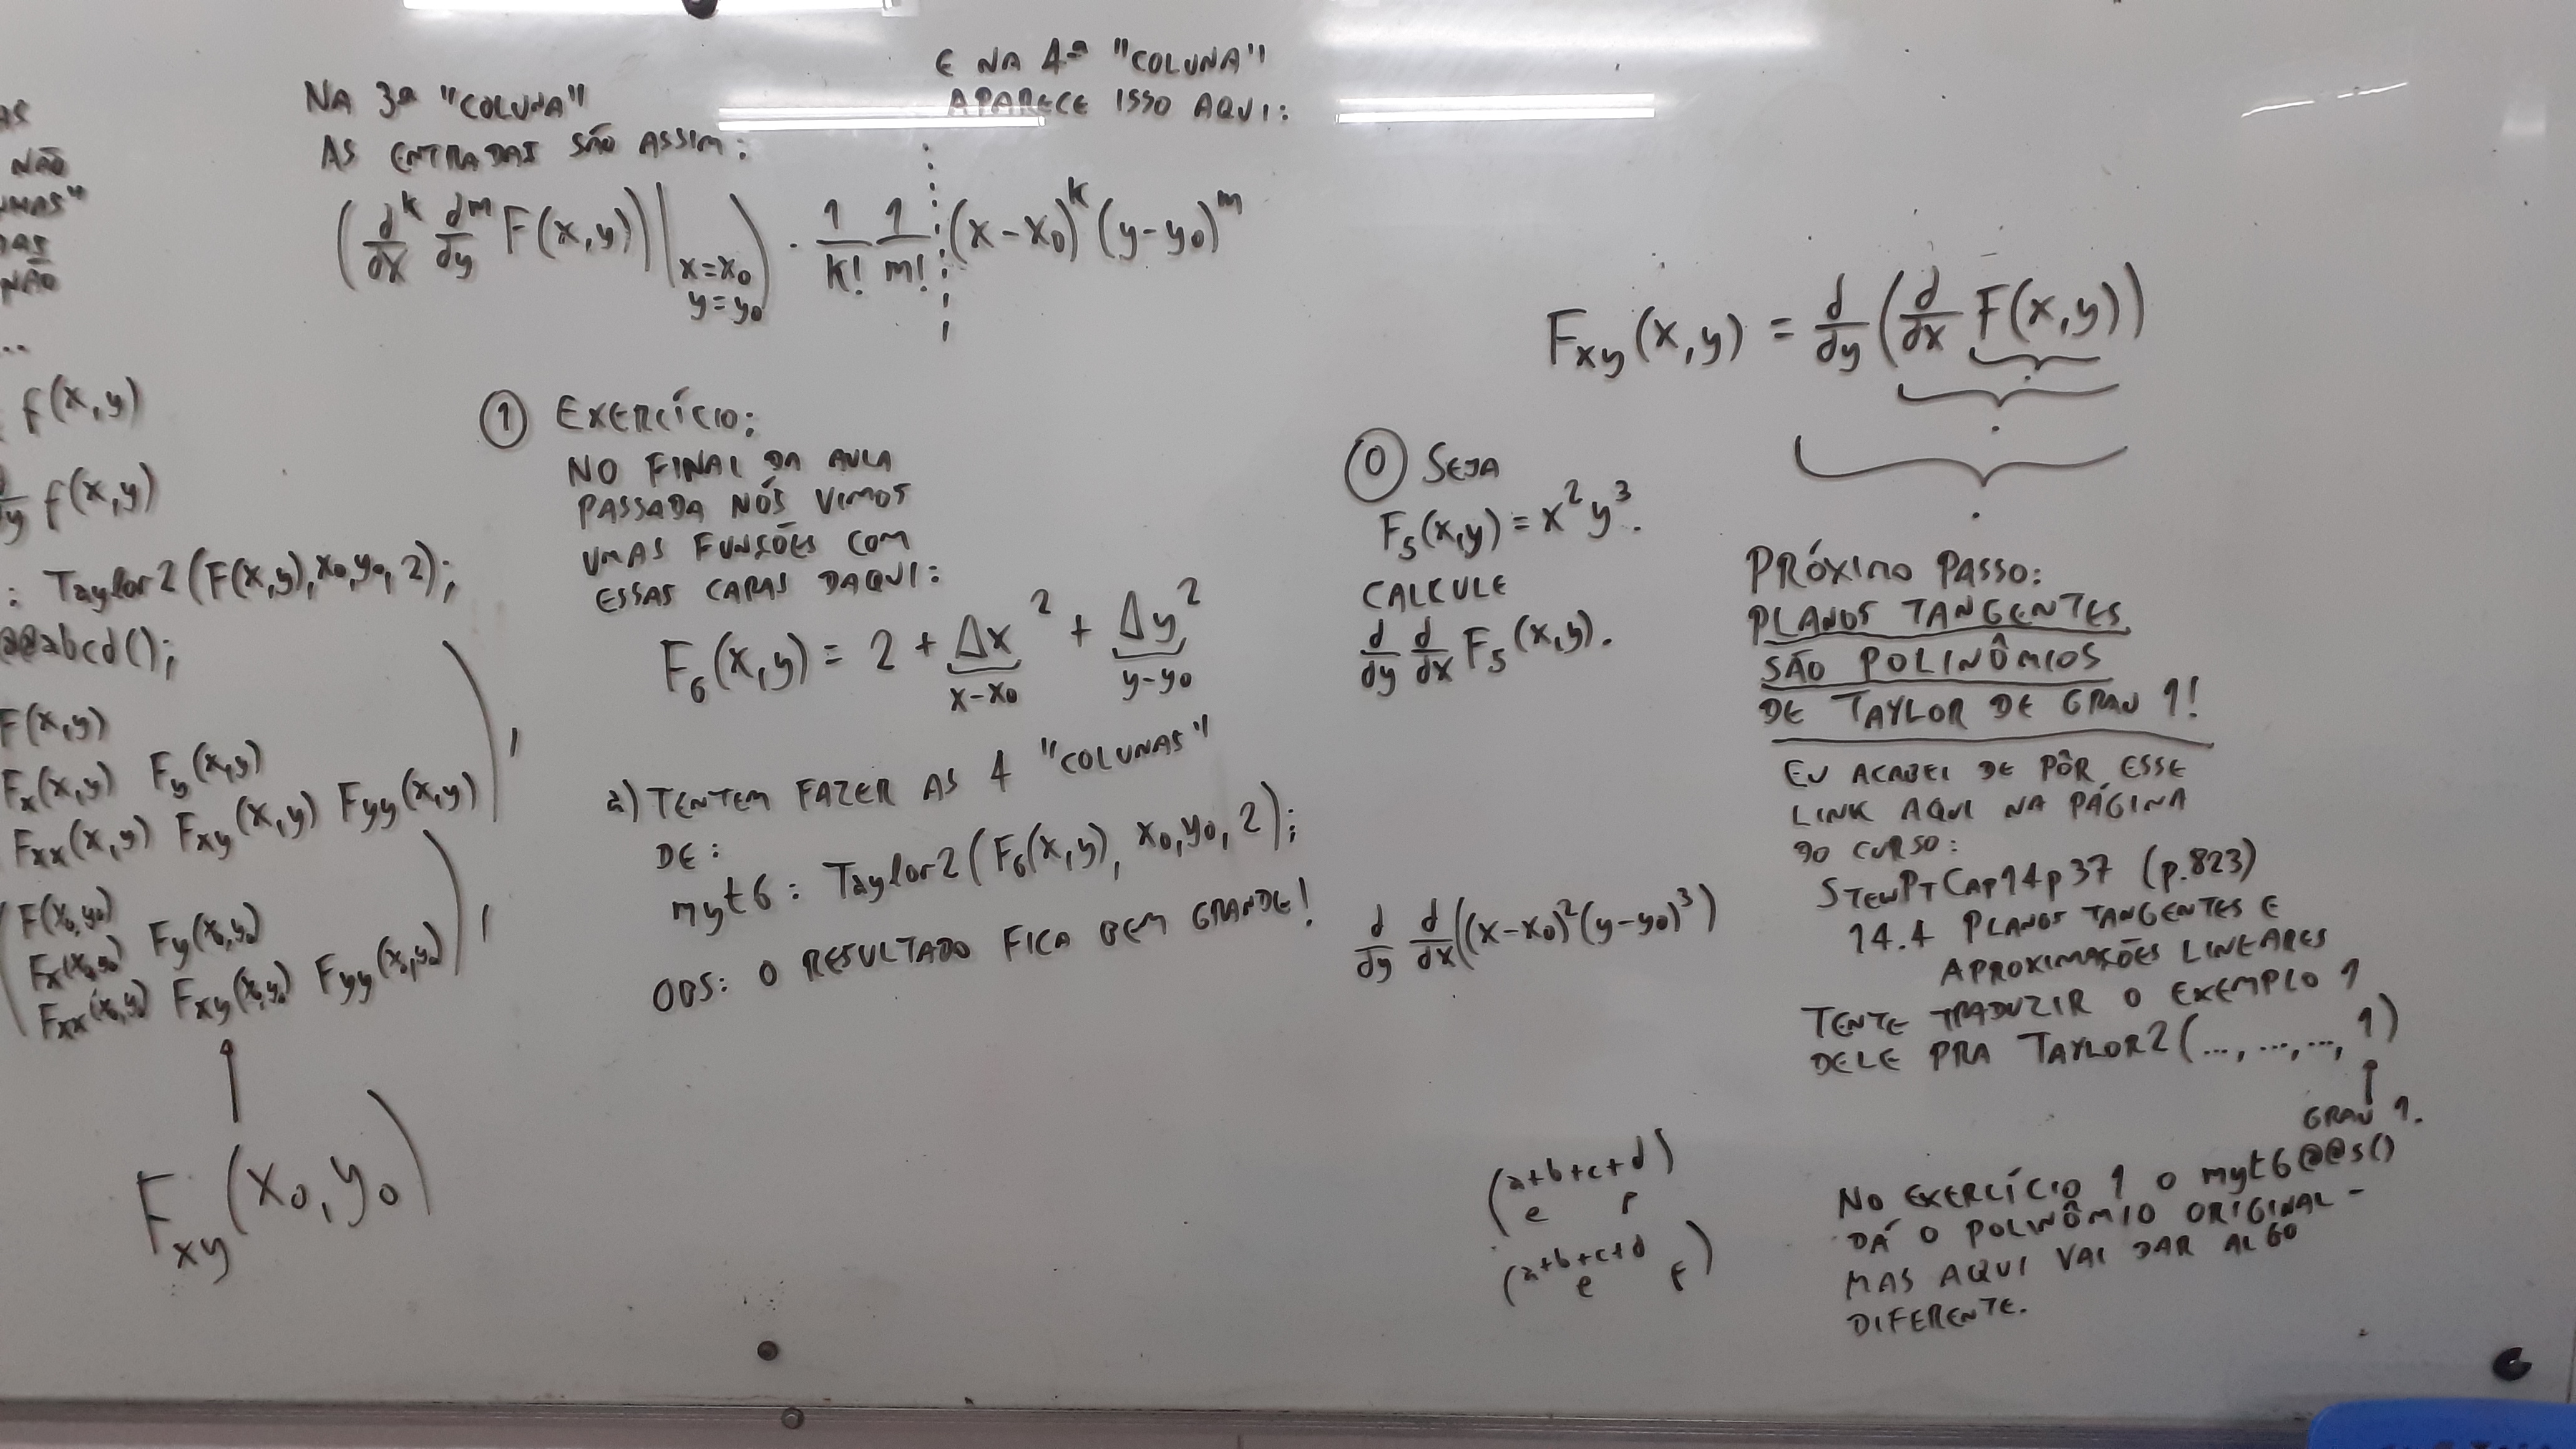 NÃO
f(x,y)
f(x,y)
: Taylor2(F(x,y),x₀,y₀,2);
@@abcd();
F(x,y)
Fx(x,y) Fy(x,y)
Fxx(x,y) Fxy(x,y) Fyy(x,y) ),
( F(x₀,y₀)
Fx(x₀,y₀) Fy(x₀,y₀)
Fxx(x₀,y₀) Fxy(x₀,y₀) Fyy(x₀,y₀) ),
Fxy(x₀,y₀)
NA 3ª "COLUNA"
AS ENTRADAS SÃO ASSIM:
E NA 4ª "COLUNA"
APARECE ISSO AQUI:
(d/dx^k d/dy^m F(x,y))|x=x₀ y=y₀) · 1/k! 1/m! (x-x₀)^k (y-y₀)^m
① EXERCÍCIO:
NO FINAL DA AULA
PASSADA NÓS VIMOS
UMAS FUNÇÕES COM
ESSAS CARAS DAQUI:
F₆(x,y) = 2 + Δx² + Δy²
x-x₀ y-y₀
a) TENTEM FAZER AS 4 "COLUNAS"
DE:
myt6: Taylor2(F₆(x,y), x₀,y₀, 2);
OBS: O RESULTADO FICA BEM GRANDE!
Fxy(x,y) = d/dy (d/dx F(x,y))
⓪ SEJA
F₅(x,y) = x²y³.
CALCULE
d/dy d/dx F₅(x,y).
d/dy d/dx((x-x₀)²(y-y₀)³)
(a+b+c+d)
e F
(a+b+c+d
e F)
PRÓXIMO PASSO:
PLANOS TANGENTES
SÃO POLINÔMIOS
DE TAYLOR DE GRAU 1!
EU ACABEI DE PÔR ESSE
LINK AQUI NA PÁGINA
DO CURSO:
STEWPTCAP14p37 (p.823)
14.4 PLANOS TANGENTES E
APROXIMAÇÕES LINEARES
TENTE TRADUZIR O EXEMPLO 1
DELE PRA TAYLOR2(..., ..., ..., 1)
GRAU 1.
NO EXERCÍCIO 1 O myt6@@s()
DÁ O POLINÔMIO ORIGINAL -
MAS AQUI VAI DAR ALGO
DIFERENTE.